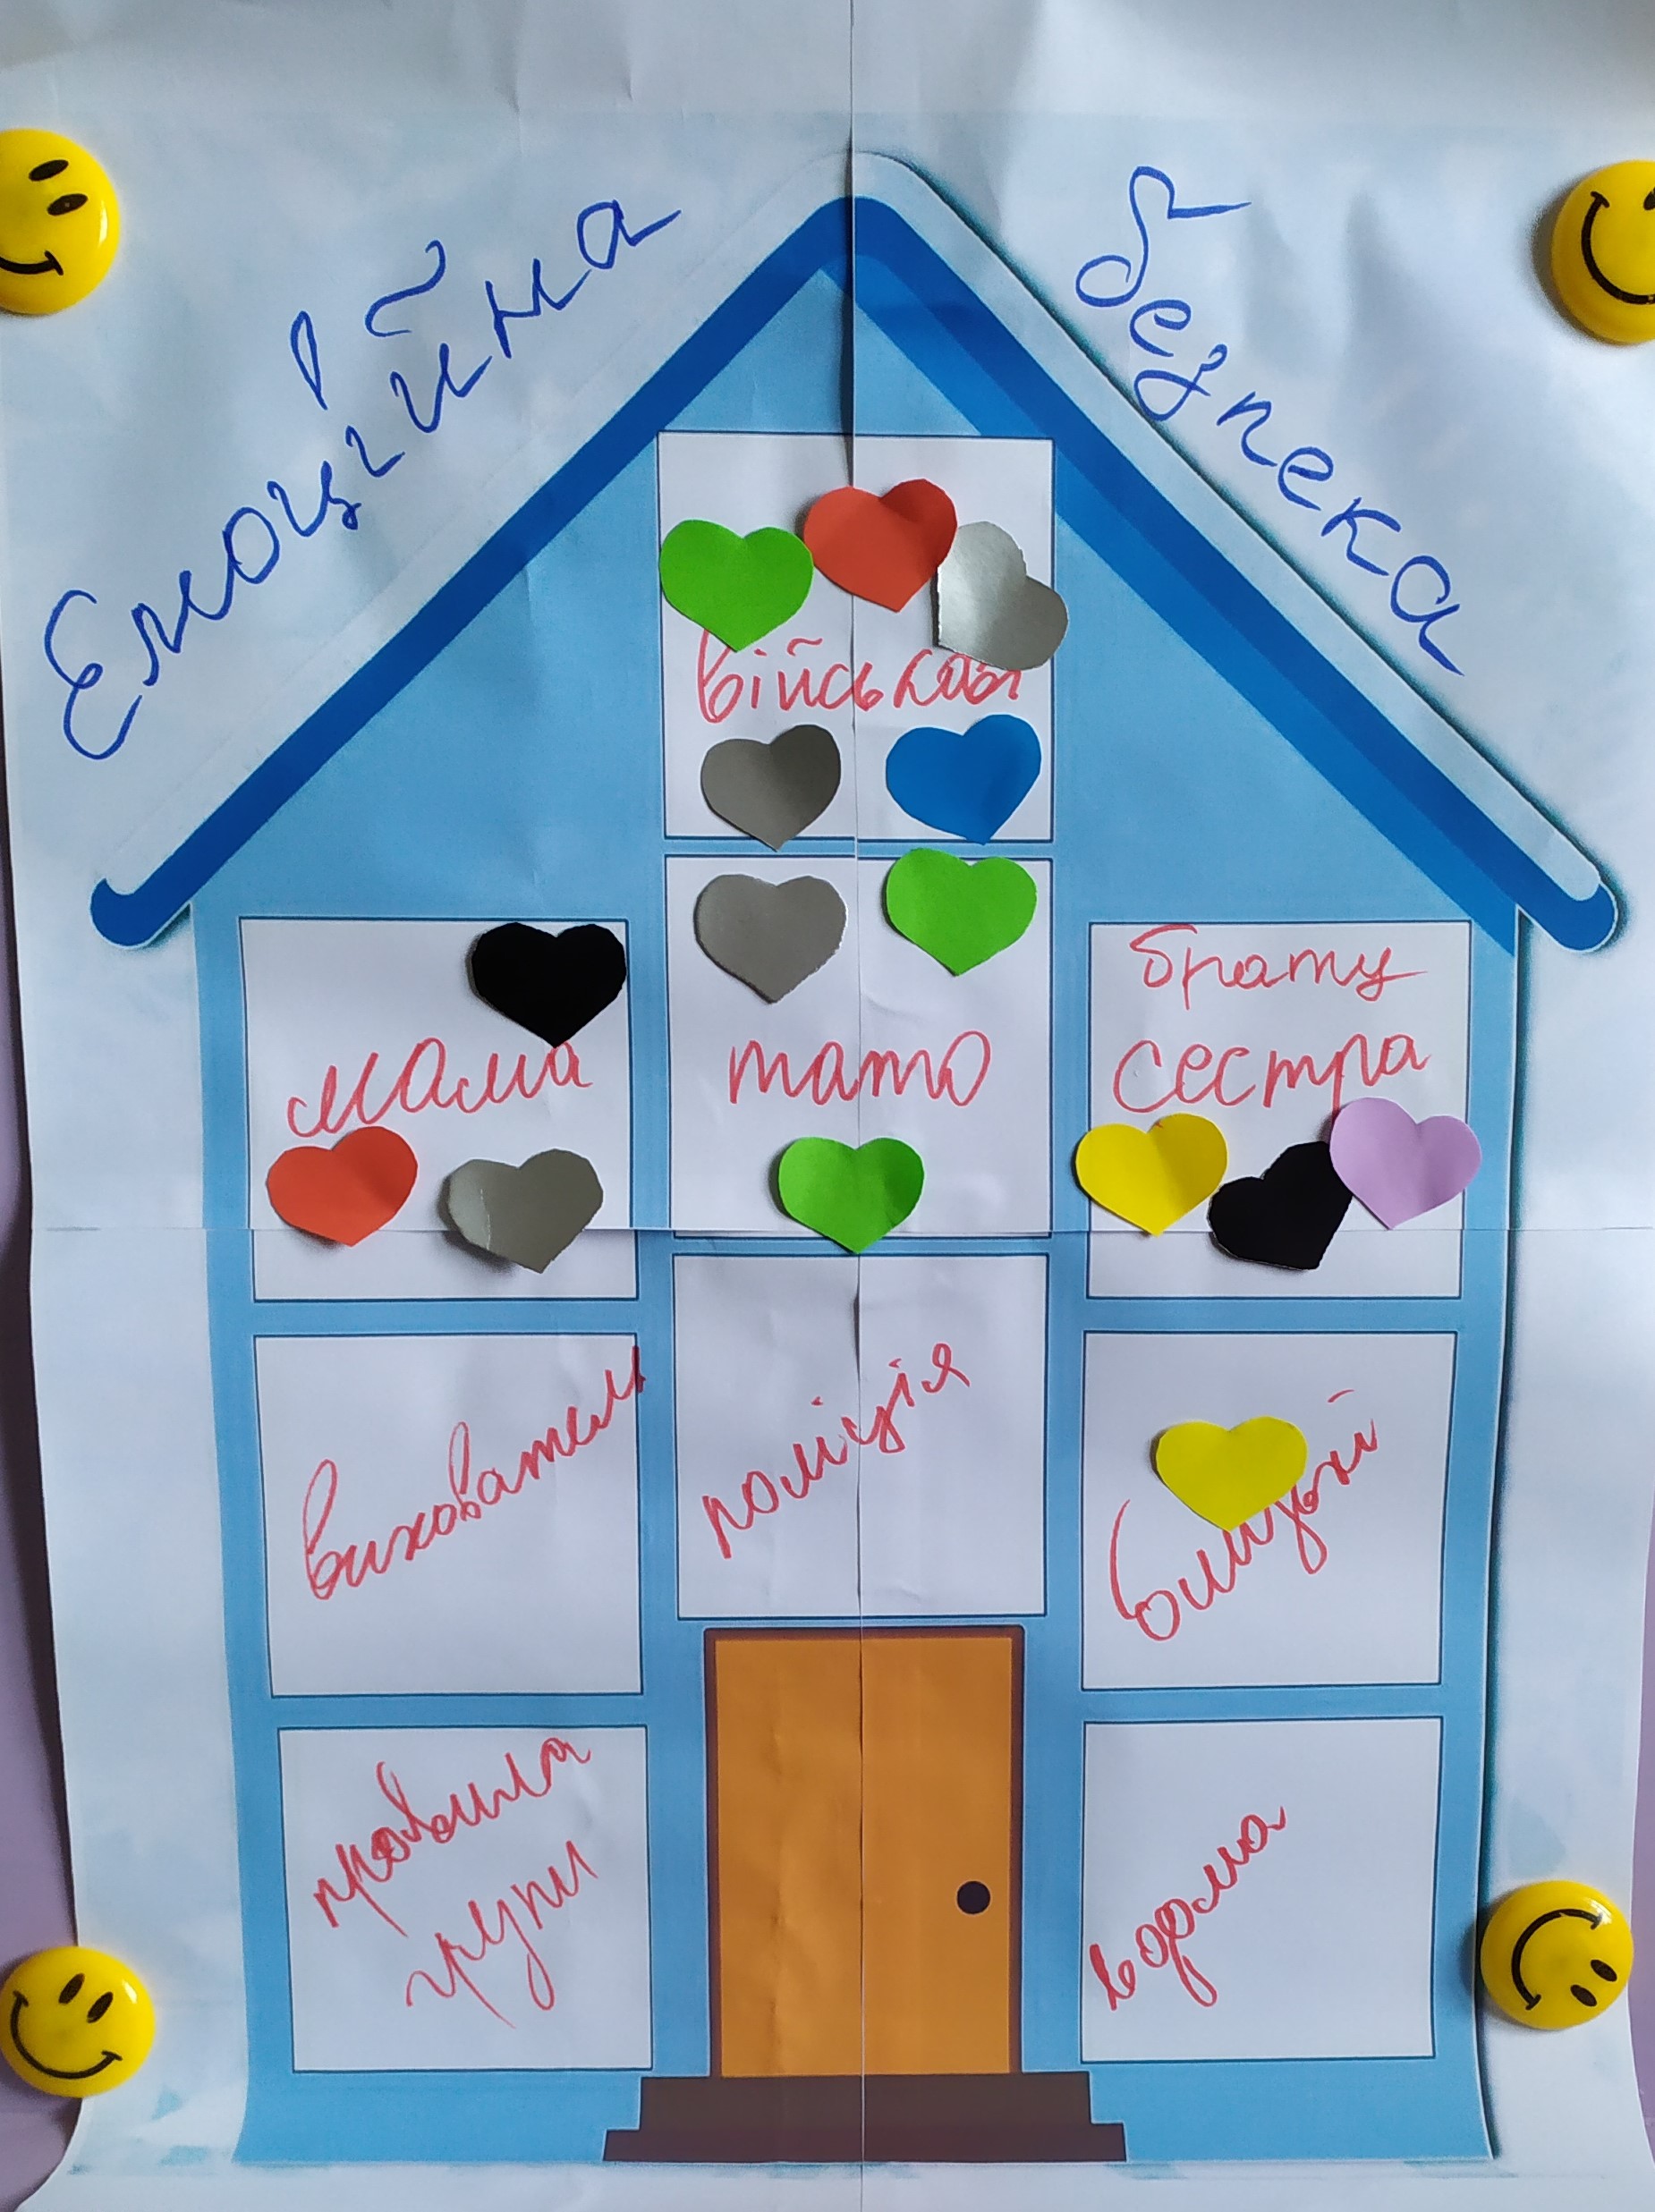 Емоційна
безпека
військові
мама
тато
брату
сестра
вихователь
поліція
близькі
правила
групи
вдома